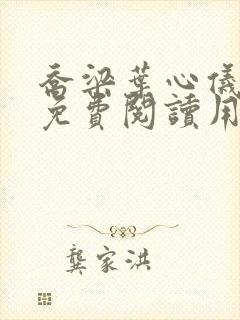 喬梁葉心儀
免費閱讀用
龔家洪